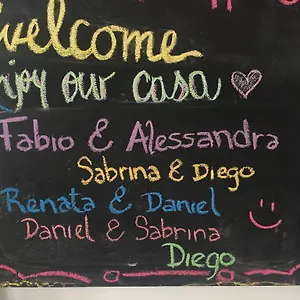 Welcome
Enjoy our casa
Fabio & Alessandra
Sabrina & Diego
Renata & Daniel
Daniel & Sabrina
Diego